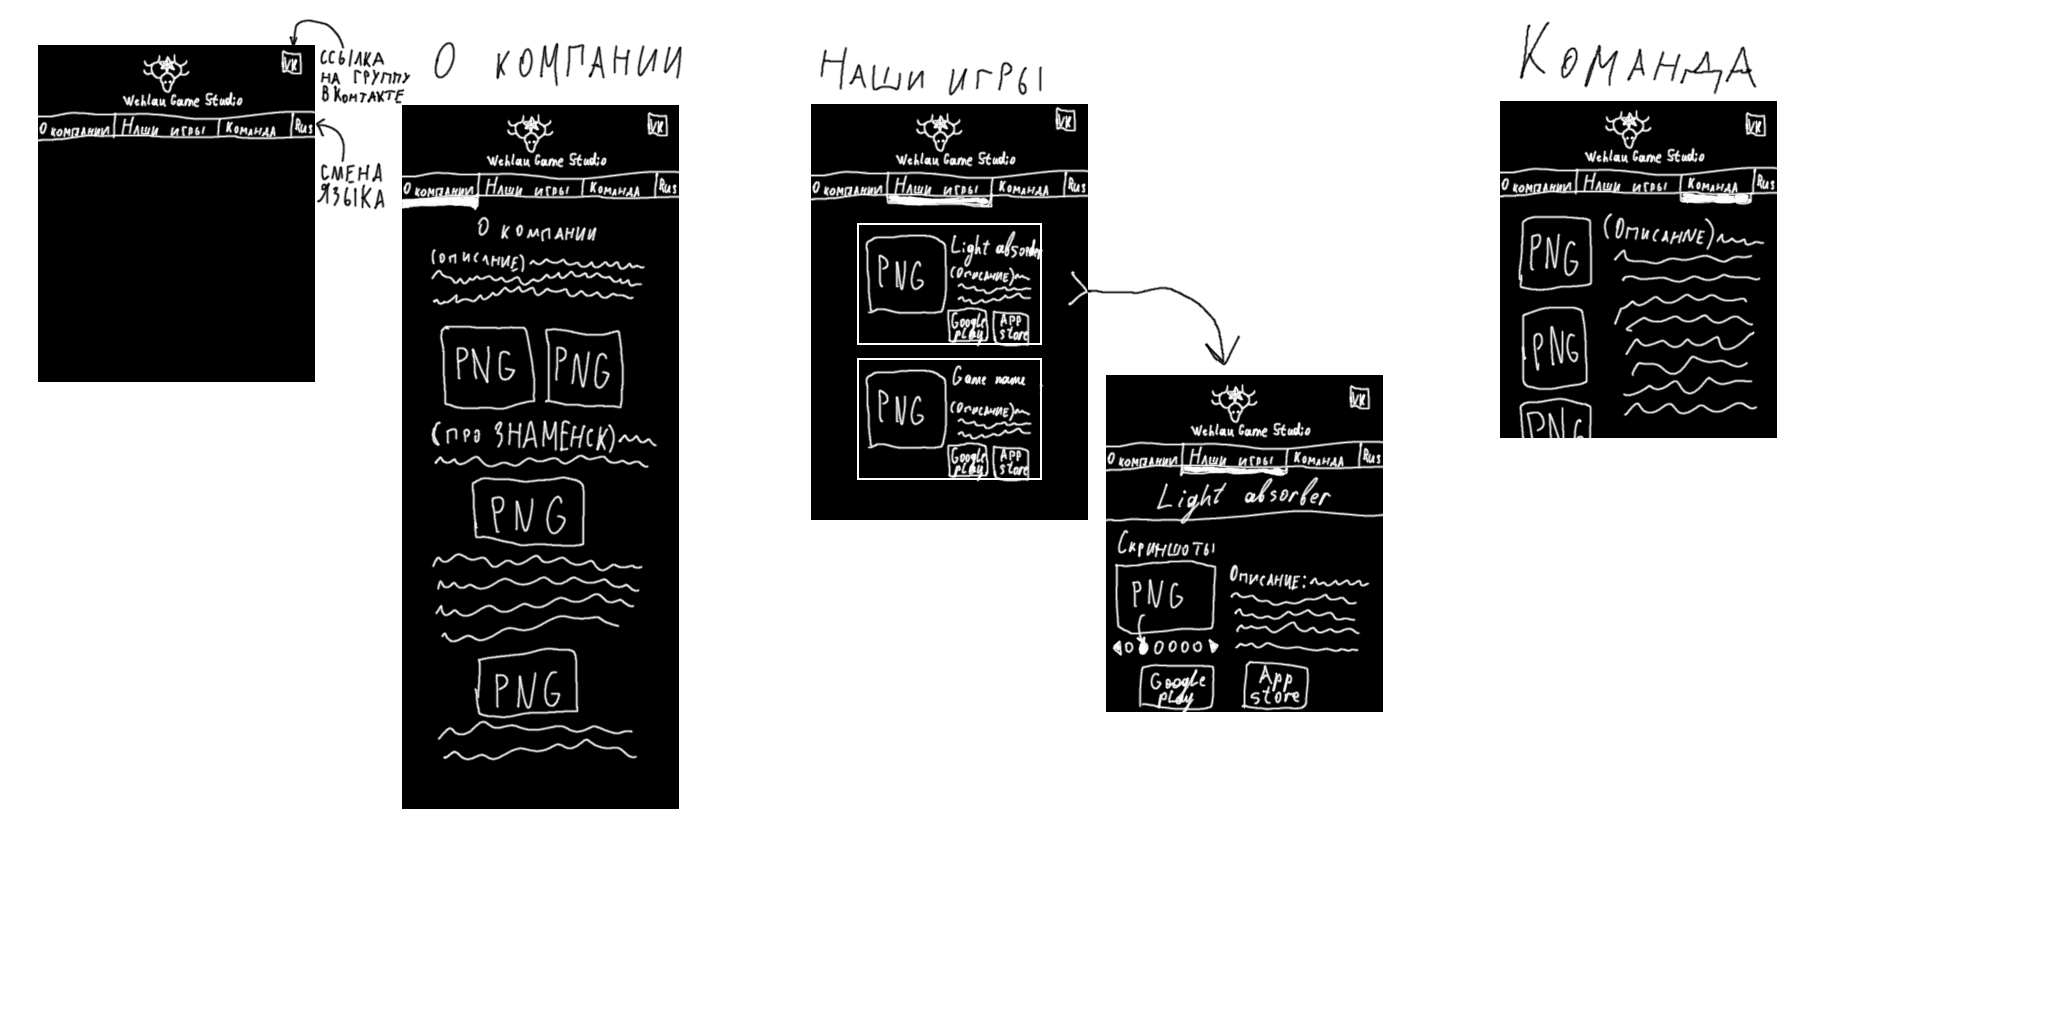 ССЫЛКА
НА ГРУППУ
ВКОНТАКТЕ
VK
Wehlau Game Studio
О компании Наши игры Команда Rus
СМЕНА
ЯЗЫКА
О компании
VK
Wehlau Game Studio
О компании Наши игры Команда Rus
О компании
(описание)
PNG PNG
(про ЗНАМЕНСК)
PNG
PNG
Наши игры
VK
Wehlau Game Studio
О компании Наши игры Команда Rus
Light absorber
PNG
(Описание)
Google play
App store
Game name
PNG
(Описание)
Google play
App store
VK
Wehlau Game Studio
О компании Наши игры Команда Rus
Light absorber
Скриншоты
PNG
Описание:
Google play
App store
Команда
VK
Wehlau Game Studio
О компании Наши игры Команда Rus
PNG
(Описание)
PNG
PNG